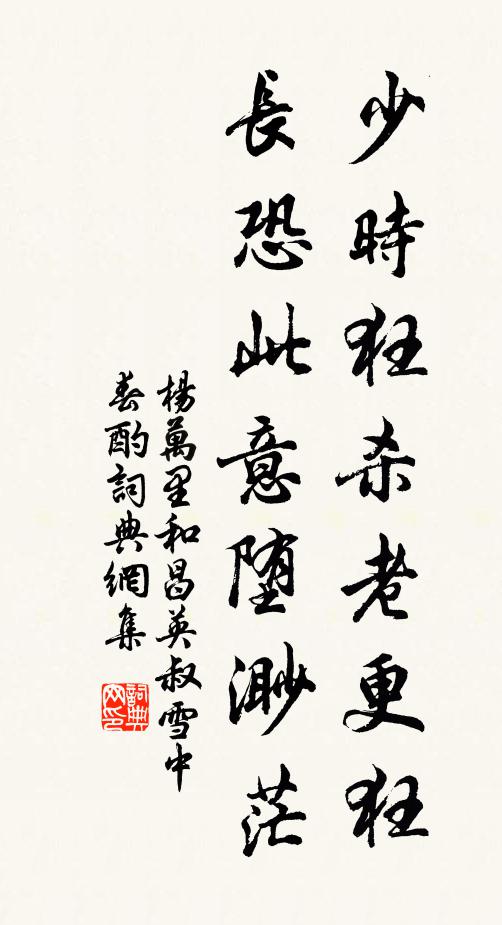 少時狂杀老更狂
長恐此意堕渺茫
楊萬里和昌英叔雪中
春酌詞典網集
詞典网印